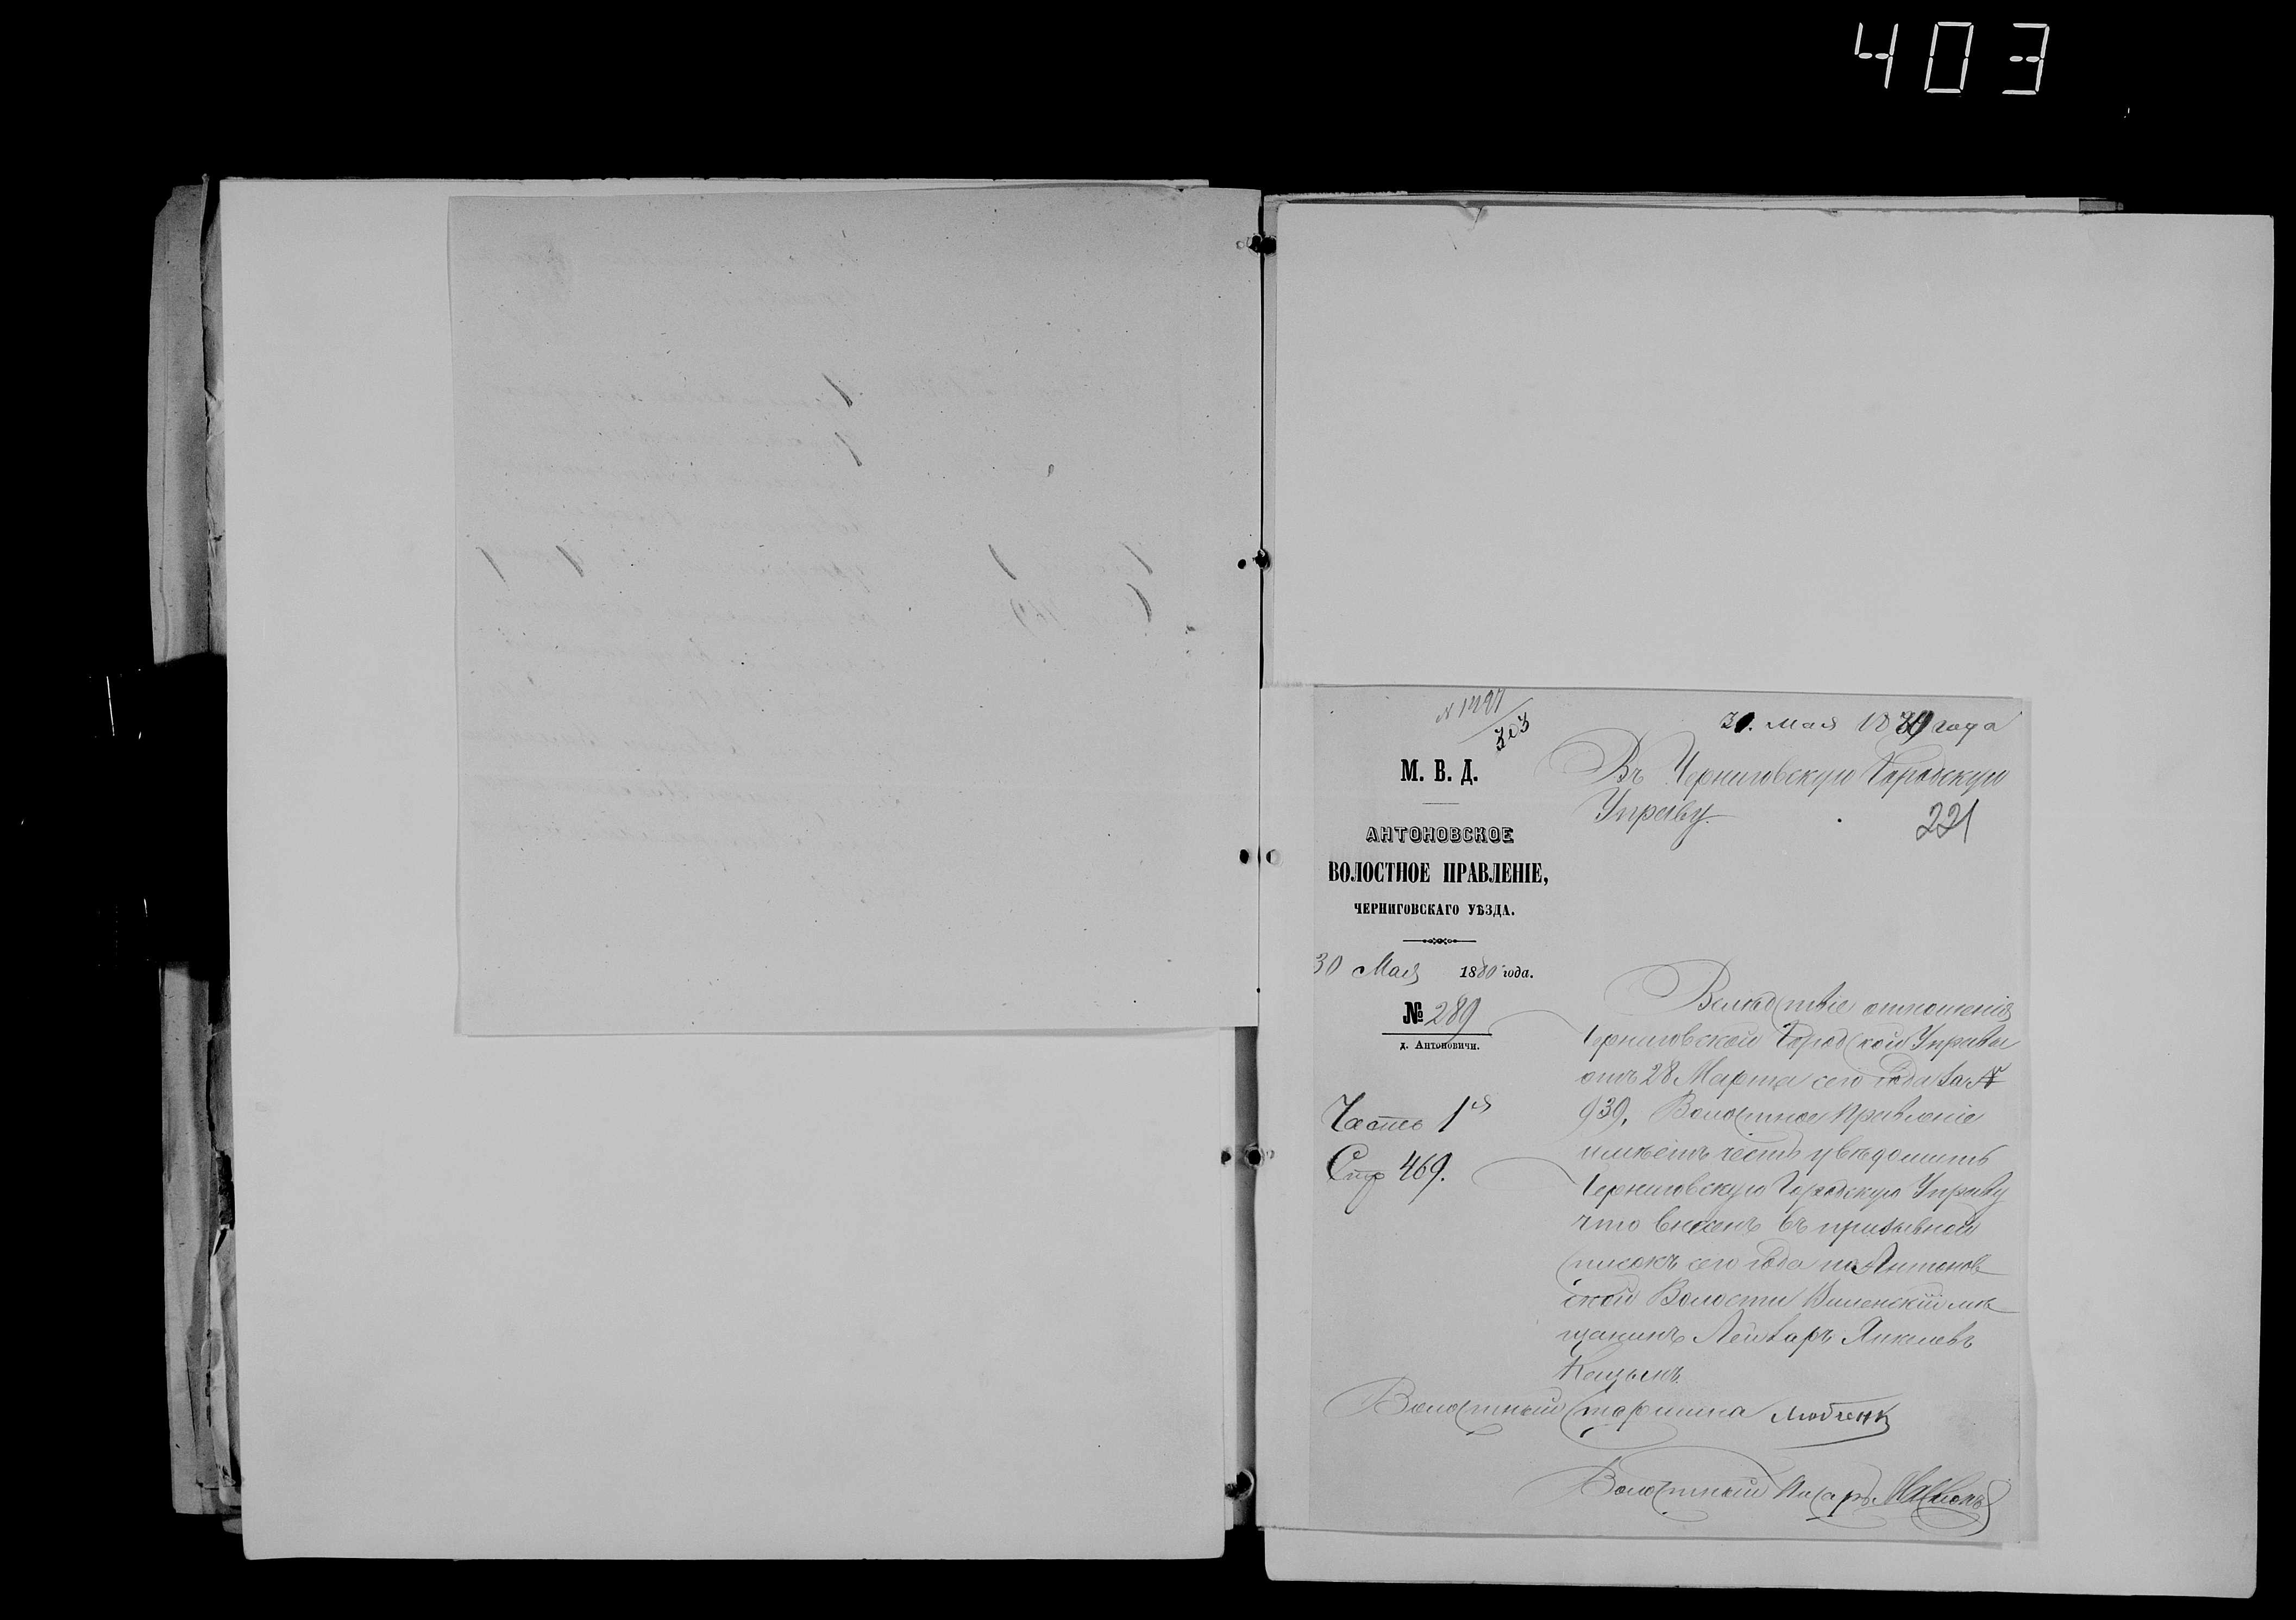 403
31. Мая 1880 года
Въ Черниговскую Городскую
Управу.
221
М. В. Д.
АНТОНОВСКОЕ
ВОЛОСТНОЕ ПРАВЛЕНІЕ,
ЧЕРНИГОВСКАГО УѢЗДА.
30 Мая 1880 года.
№ 289
д. Антоновичи.
Часть 1я
Стр 469.
Вслѣдствіе отношенія
Черниговской Городской Управы
отъ 28 Марта сего года за №
939, Волостное Правленіе
имѣетъ честь увѣдомить
Черниговскую Городскую Управу
что внесенъ въ призывной
списокъ сего года по Антонов
ской Волости Виленскій мѣ
щанинъ Лейзаръ Янкелевъ
Кацынъ.
Волостный Старшина Любченк
Волостный Писарь